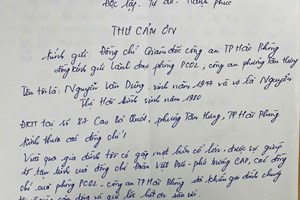 Độc lập - Tự do - Hạnh phúc
THƯ CẢN ƠN
Kính gửi: Đồng chí Giám đốc công an TP Hải Phòng
đồng kính gửi Lãnh đạo phòng PC02, công an phường Tân Hưng
Tên tôi là: Nguyễn Văn Dũng sinh năm 1977 và vợ là Nguyễn
Thị Hải Ninh sinh năm 1980
ĐKTT tại số 87 Cao Bá Quát, phường Tân Hưng, TP Hải Phòng
Kính thưa các đồng chí!
Vừa qua gia đình tôi có gặp một biến cố lớn, được sự giúp
đỡ tận tình của đồng chí Đoàn Việt - phó trưởng CAP, các đồng
chí của phòng PC02 - công an TP Hải Phòng đã khiến gia đình chúng
tôi